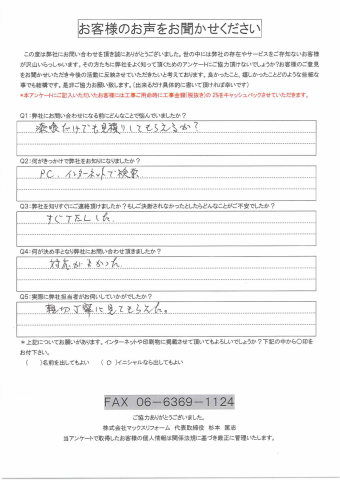 お客様のお声をお聞かせください
この度は弊社にお問い合わせを頂き誠にありがとうございました。世の中には弊社の存在やサービスをご存知ないお客様
が沢山いらっしゃいます。その方たちに弊社をよく知って頂くためのアンケートにご協力頂けないでしょうか?お客様のご意見
をお聞かせいただき今後の活動に反映させていただきたいと考えております。良かったこと、嬉しかったことどのような些細な
事でも結構です。是非ご協力お願い致します。(出来るだけ具体的に書いて頂ければ幸いです)
*本アンケートにご記入いただいたお客様には工事ご用命時に工事金額(税抜き)の2%をキャッシュバックさせていただきます。
Q1:弊社にお問い合わせになる前にどんなことで悩んでいましたか?
漆喰だけでも見積りしてもらえるか?
Q2:何がきっかけで弊社をお知りになりましたか?
PC、インターネットで検索
Q3:弊社を知りすぐにご連絡頂けましたか?もしご決断されなかったとしたらどんなことがご不安でしたか?
すぐTELした。
Q4:何が決め手となり弊社にお問い合わせ頂きましたか?
対応がよかった
Q5:実際に弊社担当者がお伺いしていかがでしたか?
親切丁寧に見てもらえた。
*上記についてお願いがあります。インターネットや印刷物に掲載させて頂いてもよろしいでしょうか?下記の中から〇印を
お付下さい。
( )名前を出してもよい (O)イニシャルなら出してもよい
FAX 06-6369-1124
ご協力ありがとうございました。
株式会社マックスリフォーム 代表取締役 杉本 匡志
当アンケートで取得したお客様の個人情報は関係法規に基づき厳正に管理いたします。